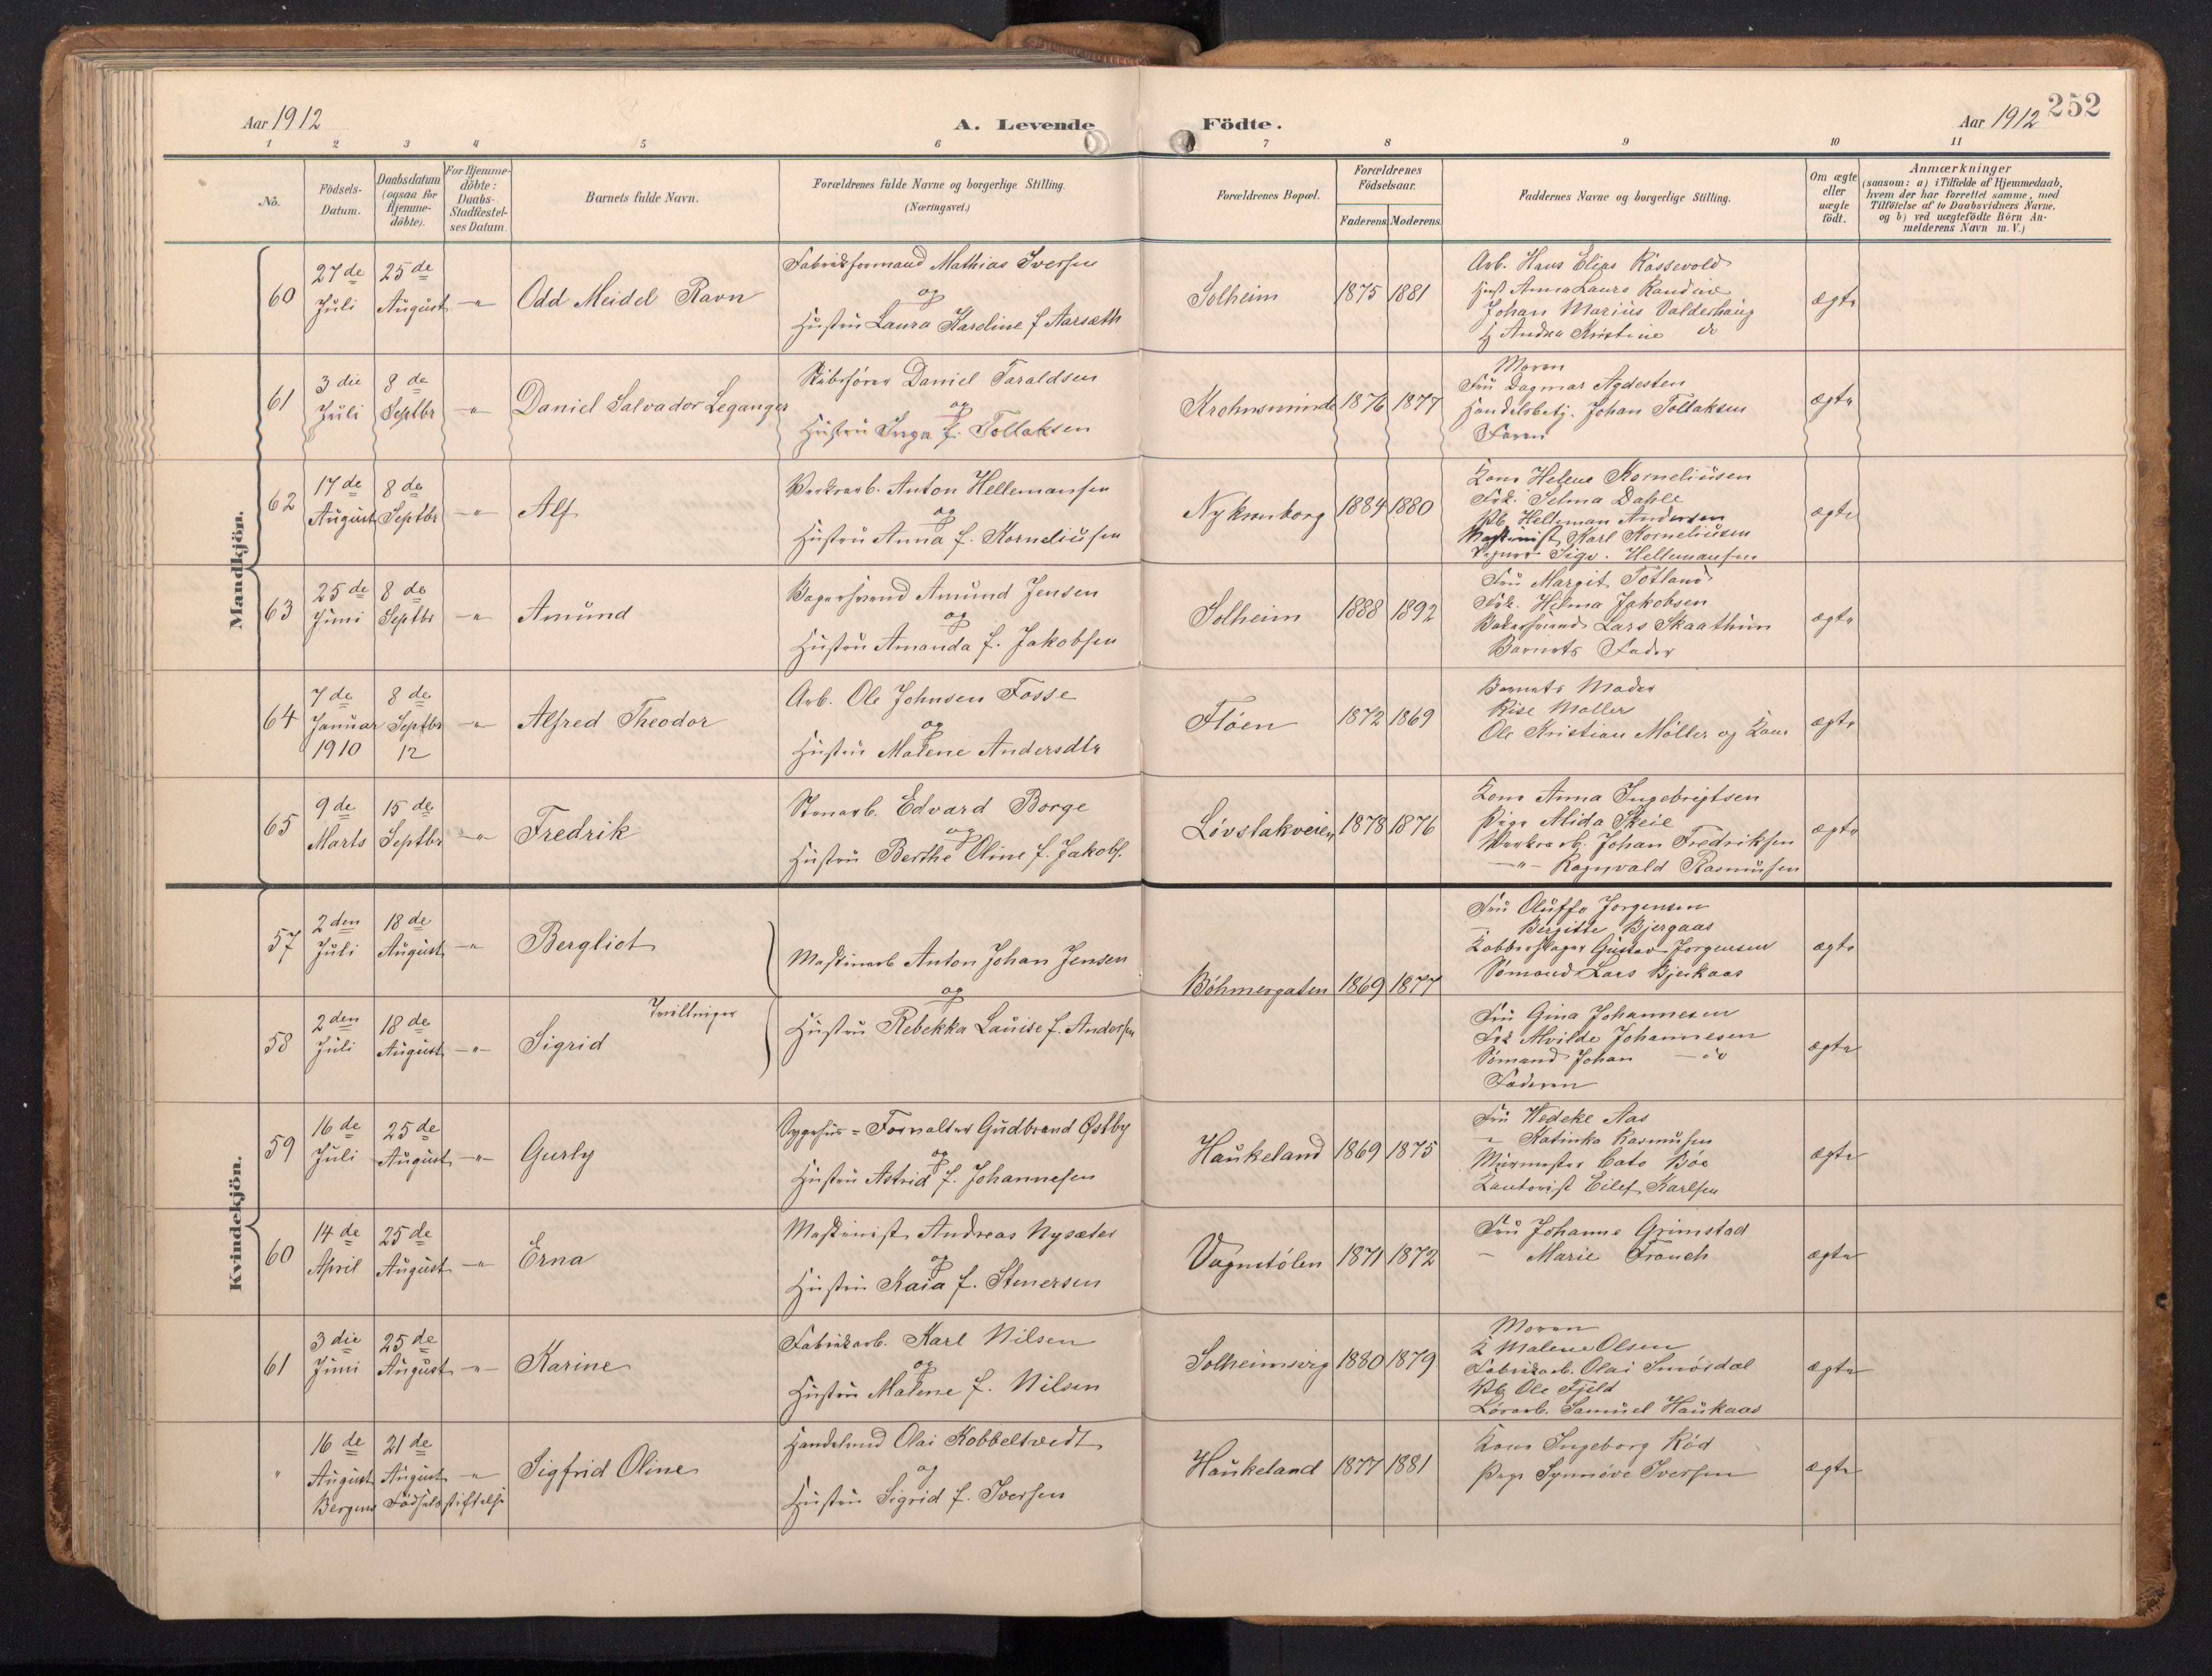 Aar 1912
A. Levende Födte.
Aar 1912 252
1 2 3 4 5 6 7 8 9 10 11
No.
Födsels-
Datum.
Daabsdatum
(ogsaa for
Hjemme-
döbte).
For Hjemme-
döbte:
Daabs-
Stadfæstel-
ses Datum.
Barnets fulde Navn.
Forældrenes fulde Navne og borgerlige Stilling.
(Næringsvei.)
Forældrenes Bopæl.
Forældrenes
Födselsaar.
Faderens. Moderens.
Faddernes Navne og borgerlige Stilling.
Om ægte
eller
uægte
födt.
Anmærkninger
(saasom: a) i Tilfælde af Hjemmedaab,
hvem der har forrettet samme, med
Tilföielse af to Daabsvidners Navne,
og b) ved uægtefödte Börn An-
melderens Navn m. V.)
Mandkjön.
60
27de
Juli
25de
August
-"-
Odd Meidel Ravn
Fabrikformand Mathias Iversen
og
Hustru Laura Karoline f Aarsæth
Solheim
1875 1881
Arb. Hans Elias Rossevold
Hust Anna Laura Randine
Johan Marius Valderhaug
H Andrea Kristine do
ægte
61
3die
Juli
8de
Septbr
-"-
Daniel Salvador Leganger
Skibsförer Daniel Taraldsen
og
Hustru Inga f. Tollaksen
Krohnsminde
1876 1877
Moren
Fru Dagmar Agdesten
Handelsbetj. Johan Tollaksen
Faren
ægte
62
17de
August
8de
Septbr
-"-
Alf
Verksarb. Anton Hellemansen
og
Hustru Anna f. Korneliusen
Nykronborg
1884 1880
Kone Helene Korneliusen
Frk. Selma Dahle
Helleman Andersen
Maskinist Karl Korneliusen
Sigv. Hellemansen
ægte
63
25de
Juni
8de
Septbr
-"-
Amund
Bagersvend Amund Jensen
og
Hustru Amanda f. Jakobsen
Solheim
1888 1892
Fru Margit Totland
Frk. Helma Jakobsen
Bakersvend Lars Skaathun
Barnets Fader
ægte
64
7de
Januar
1910
8de
Septbr
12
-"-
Alfred Theodor
Arb. Ole Johnsen Fosse
og
Hustru Malene Andersdtr
Flöen
1872 1869
Barnets Moder
Rise Møller
Ole Kristian Möller og Kone
ægte
65
9de
Marts
15de
Septbr
-"-
Fredrik
Stenarb. Edvard Borge
og
Hustru Berthe Oline f. Jakobs.
Lövstakveien
1878 1876
Kone Anna Ingebrigtsen
Pige Alida Skeie
Verksarb. Johan Fredriksen
-"- Ragnvald Rasmusen
ægte
Kvindekjön.
57
2den
Juli
18de
August
-"-
Bergliot
Maskinarb Anton Johan Jensen
og
Hustru Rebekka Lauise f. Andersen
Böhmergaten
1869 1877
Fru Oluffa Jorgensen
- Bergitte Bjergaas
Kobberslager Gustav Jorgensen
Sömand Lars Bjerkaas
ægte
58
2den
Juli
18de
August
-"-
Tvillinger
Sigrid
Fru Gina Johannesen
Frk Alvilde Johannesen
Sömand Johan - do
Faderen
ægte
59
16de
Juli
25de
August
-"-
Gurly
Sygehus - Forvalter Gudbrand Østby
og
Hustru Astrid f. Johannesen
Haukeland
1869 1875
Fru Wedeke Aas
" Katinka Rasmusen
Murmester Cato Böe
Kontorist Eilef Karlsen
ægte
60
14de
April
25de
August
-"-
Erna
Maskinist Andreas Nysæter
og
Hustru Kaia f. Stenersen
Vögnstölen
1871 1872
Fru Johanne Grimstad
- Marie Franch
ægte
61
3die
Juni
25de
August
-"-
Karine
Fabrikarb. Karl Nilsen
og
Hustru Malene f. Nilsen
Solheimsvig
1880 1879
Moren
K Malene Olsen
Fabrikarb. Olai Smörsdal
Ole Fjeld
Samuel Haukaas
ægte
"
16de
August
21de
August
-"-
Bergens Födselsstiftelse
Sigfrid Oline
Handelsmd Olai Kobbeltvedt
og
Hustru Sigrid f. Iversen
Haukeland
1877 1881
Kone Ingeborg Röd
Pige Synnöve Iversen
ægte